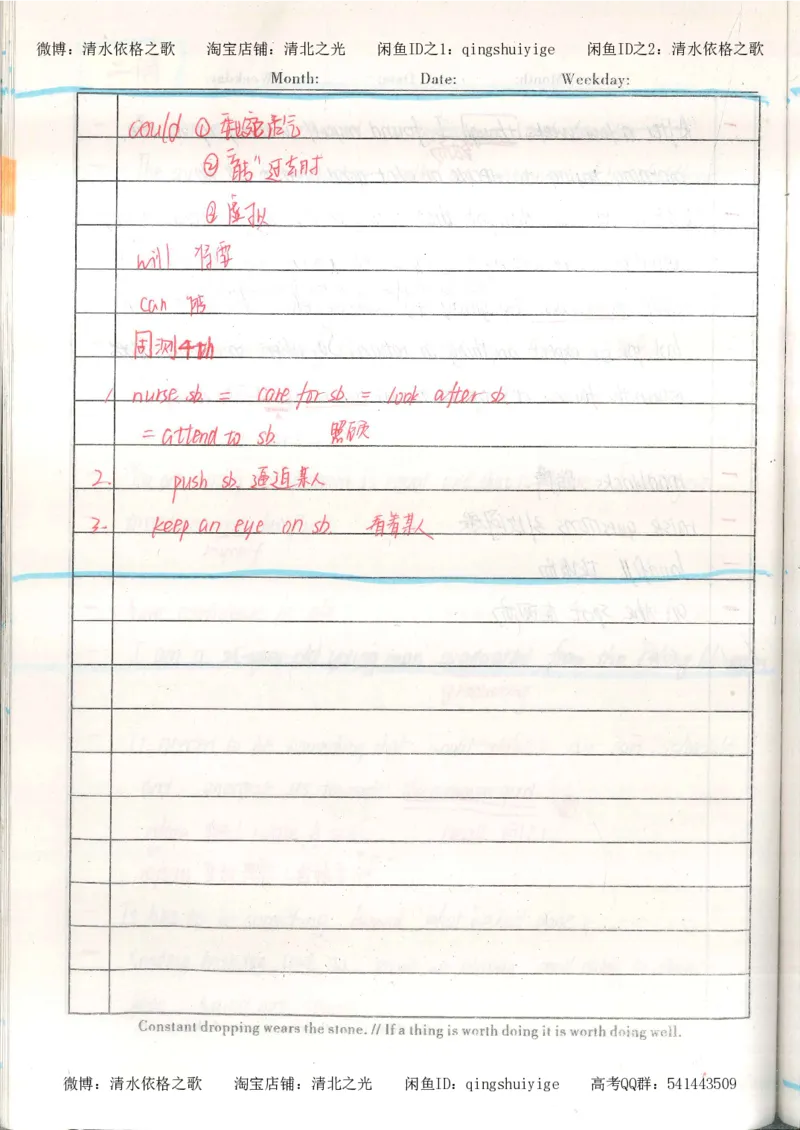 微博：清水依格之歌 淘宝店铺：清北之光 闲鱼ID之1：qingshuiyige 闲鱼ID之2：清水依格之歌
Month: Date: Weekday:
could ① 委婉语气
② "能"过去时
③ 虚拟
will 将要
can 能
周测4th
1. nurse sb. = care for sb. = look after sb
= attend to sb. 照顾
2. push sb. 逼迫某人
3. keep an eye on sb. 看着某人
Constant dropping wears the stone. // If a thing is worth doing it is worth doing well.
微博：清水依格之歌 淘宝店铺：清北之光 闲鱼ID：qingshuiyige 高考QQ群：541443509